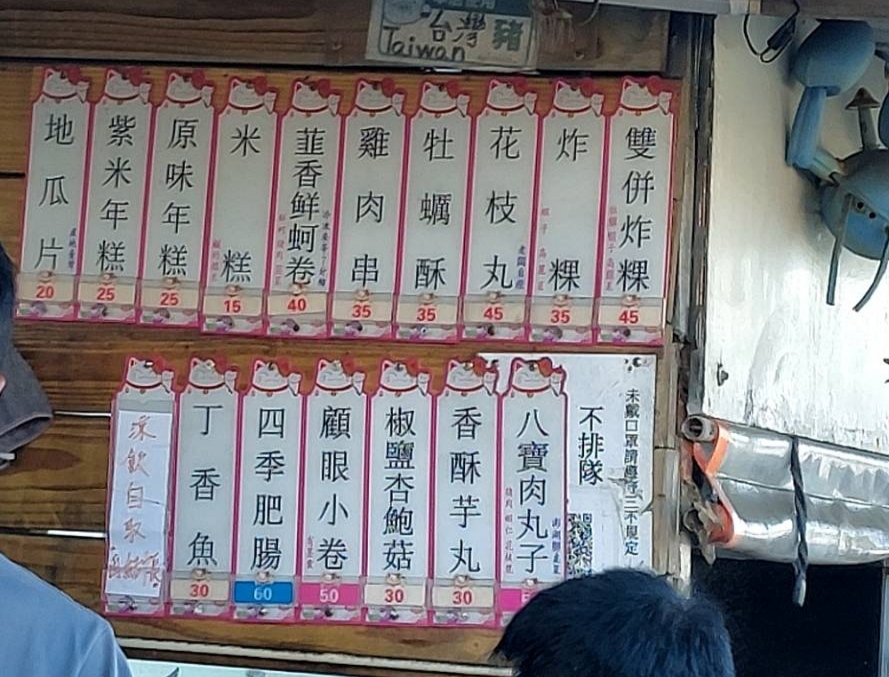 台灣豬
Taiwan
雙併炸粿
45
炸粿
蝦子 高麗菜
35
花枝丸
老闆自推
45
牡蠣酥
35
雞肉串
35
韮香鮮蚵卷
40
米糕
15
原味年糕
25
紫米年糕
25
地瓜片
產地台灣
20
未戴口罩請遵守三不規定
不排隊
八寶肉丸子
香酥芋丸
30
椒鹽杏鮑菇
30
顧眼小卷
50
四季肥腸
60
丁香魚
30
涼飲自取